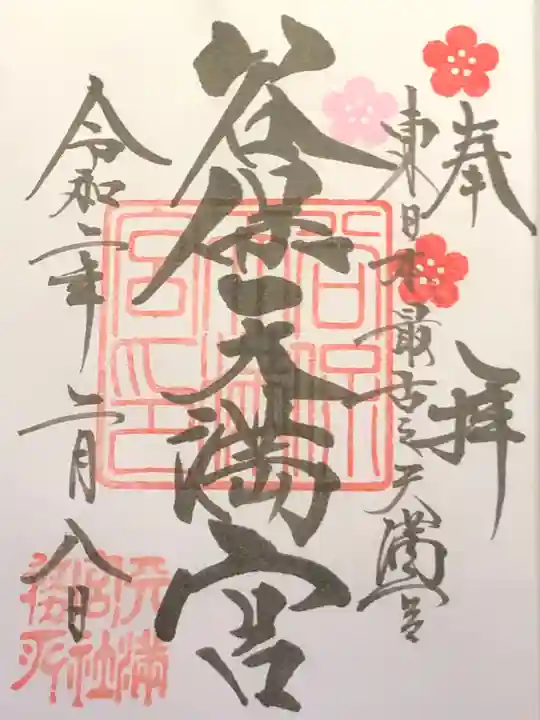 奉拝
東日本最古之天満宮
谷保天満宮
令和二年二月八日
谷保天満宮之印
天満宮社務所